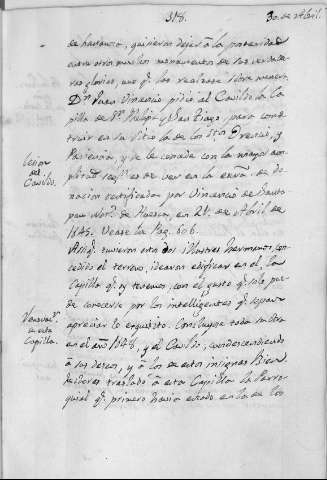 318.
30. de Abril.
de hartanzo, quisieron dejar á la posteridad
entre otros muchos monumentos de sus verdade-
ras glorias, uno qe. las realzase sobre manera.
Dn. Juan Vincencio pidió al Cavildo la Ca-
pilla de Sn. Felipe y San Tiago, para cons-
truir en su sitio la de los Stos. Orencio, y
Paciencia, y se le concede con la mayor am-
plitud segun es de ver en la escra. de do-
nacion testificada por Vincencio de Santa
pau Notº. de Huesca, en 21. de Abril de
1645. Vease la Pag. 606.
Asi qe. tuvieron estos dos illustres hermanos, con-
cedido el terreno, idearon edificar en el, la
Capilla qe. oy tenemos, con el gusto qe. solo pue-
de conocerse por los intelligentes qe. sepan
apreciar lo exquisito. Concluyose toda su obra
en el año 1648, y el Cavildo, condescendiendo
á sus deseos, y á los de estos insignes Bien
hechores trasladó á esta Capilla la Parro-
quial qe. primero havia estado en la de los
Cesion
del
Cavildo.
en esta
Capilla.